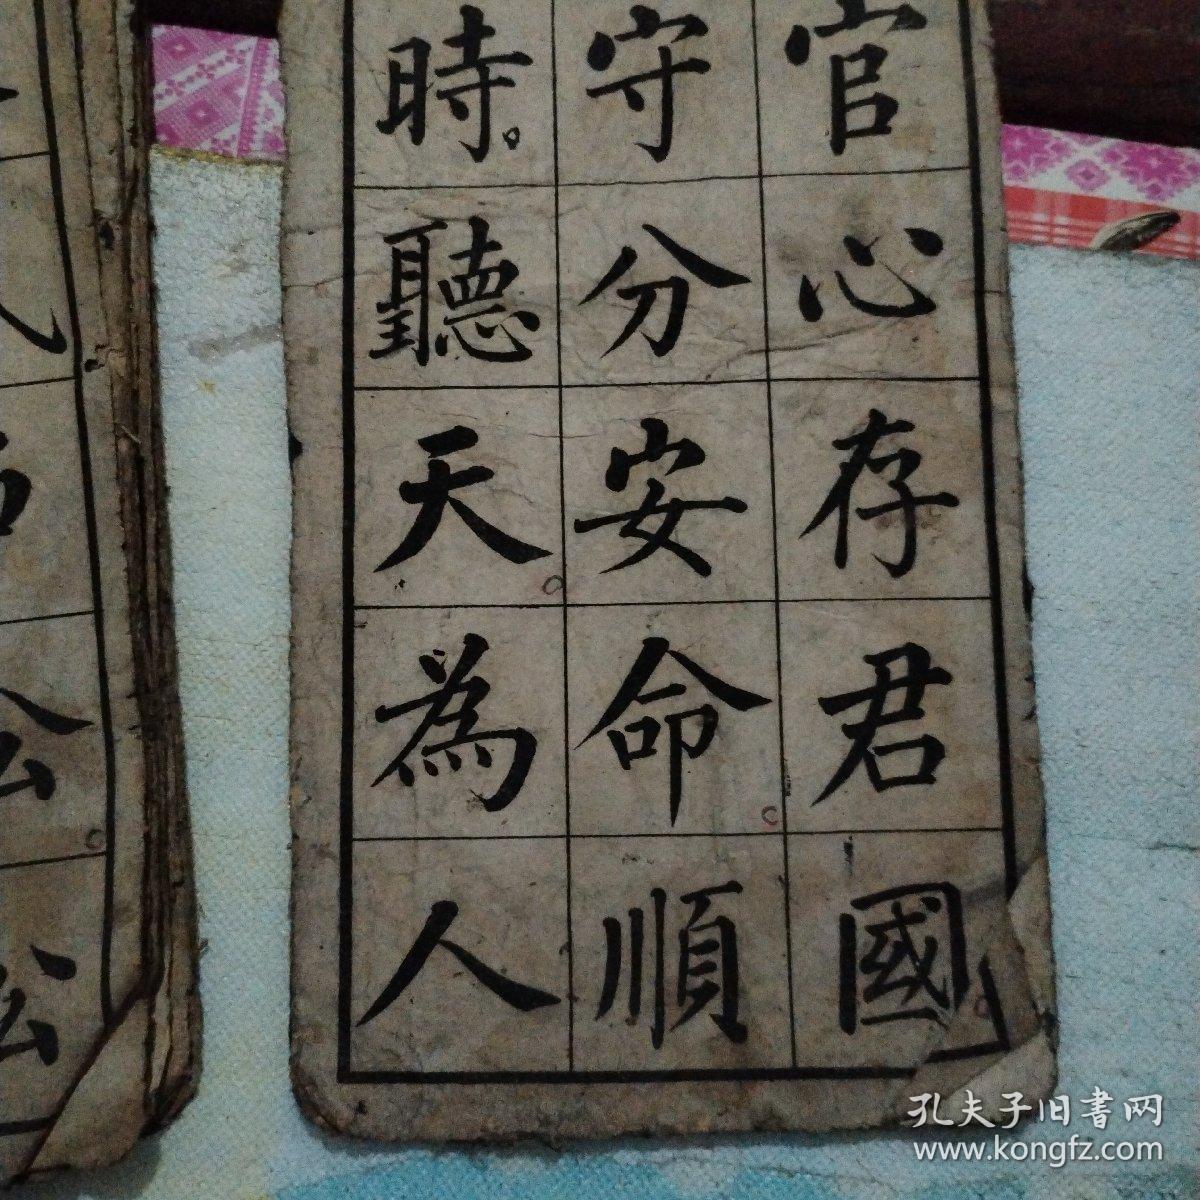 官心存君國
守分安命順
時。聽天為人
公
公
孔夫子旧書网
www.kongfz.com